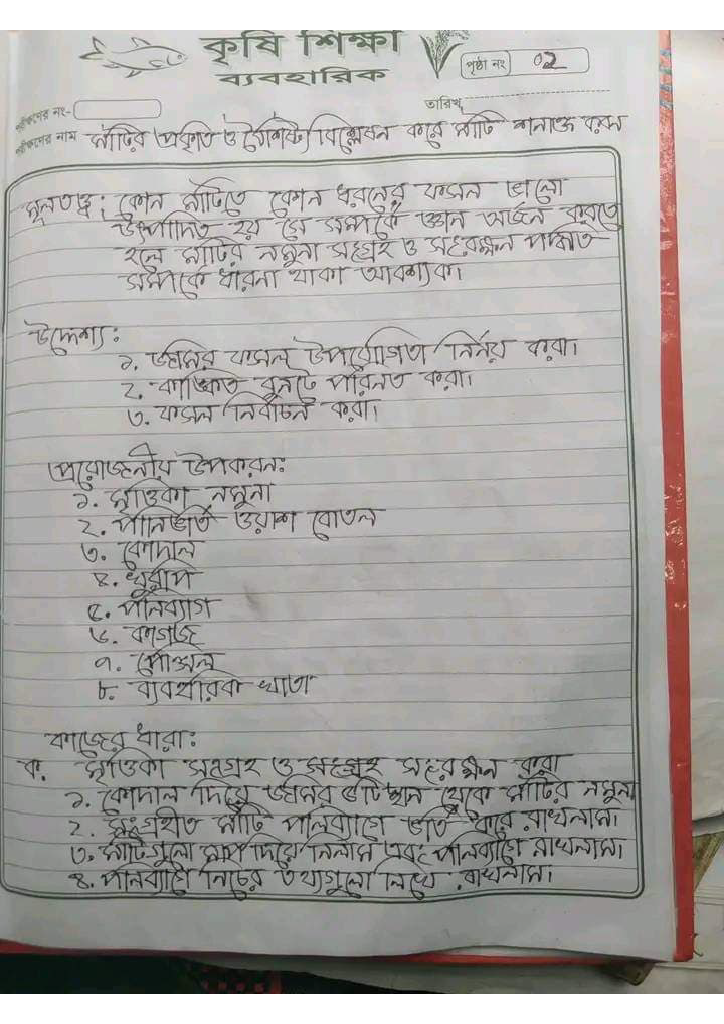 কৃষি শিক্ষা
ব্যবহারিক
পৃষ্ঠা নং ০2
তারিখ
পরীক্ষণের নং-
পরীক্ষণের নাম মাটির প্রকৃতি ও বৈশিষ্ট্য বিশ্লেষন করে মাটি শনাক্ত করন
মূলতত্ত্ব: কোন মাটিতে কোন ধরনের ফসল ভালো
উৎপাদিত হয় সে সম্পর্কে জ্ঞান অর্জন করতে
হলে মাটির নমুনা সংগ্রহ ও সংরক্ষন পদ্ধতি
সম্পর্কে ধারনা থাকা আবশ্যক।
উদ্দেশ্য:
১. জমির ফসল উপযোগিতা নির্নয় করা।
২. কাঙ্ক্ষিত বুনটে পরিনত করা।
৩. ফসল নির্বাচন করা।
প্রয়োজনীয় উপকরন:
১. মৃত্তিকা নমুনা
২. পানিভর্তি ওয়াশ বোতল
৩. কোদাল
৪. খুরপি
৫. পলিব্যাগ
৬. কাগজ
৭. পেন্সিল
৮. ব্যবহারিক খাতা
কাজের ধারা:
ক. মৃত্তিকা সংগ্রহ ও সংগ্রহ সংরক্ষন করা
১. কোদাল দিয়ে জমির ৫টি স্থান থেকে মাটির নমুনা
২. সংগ্রহীত মাটি পলিব্যাগে ভর্তি করে রাখলাম।
৩. মাটিগুলো মাপ দিয়ে নিলাম এবং পলিব্যাগে রাখলাম।
৪. পলিব্যাগে নিচের তথ্যগুলো লিখে রাখলাম।